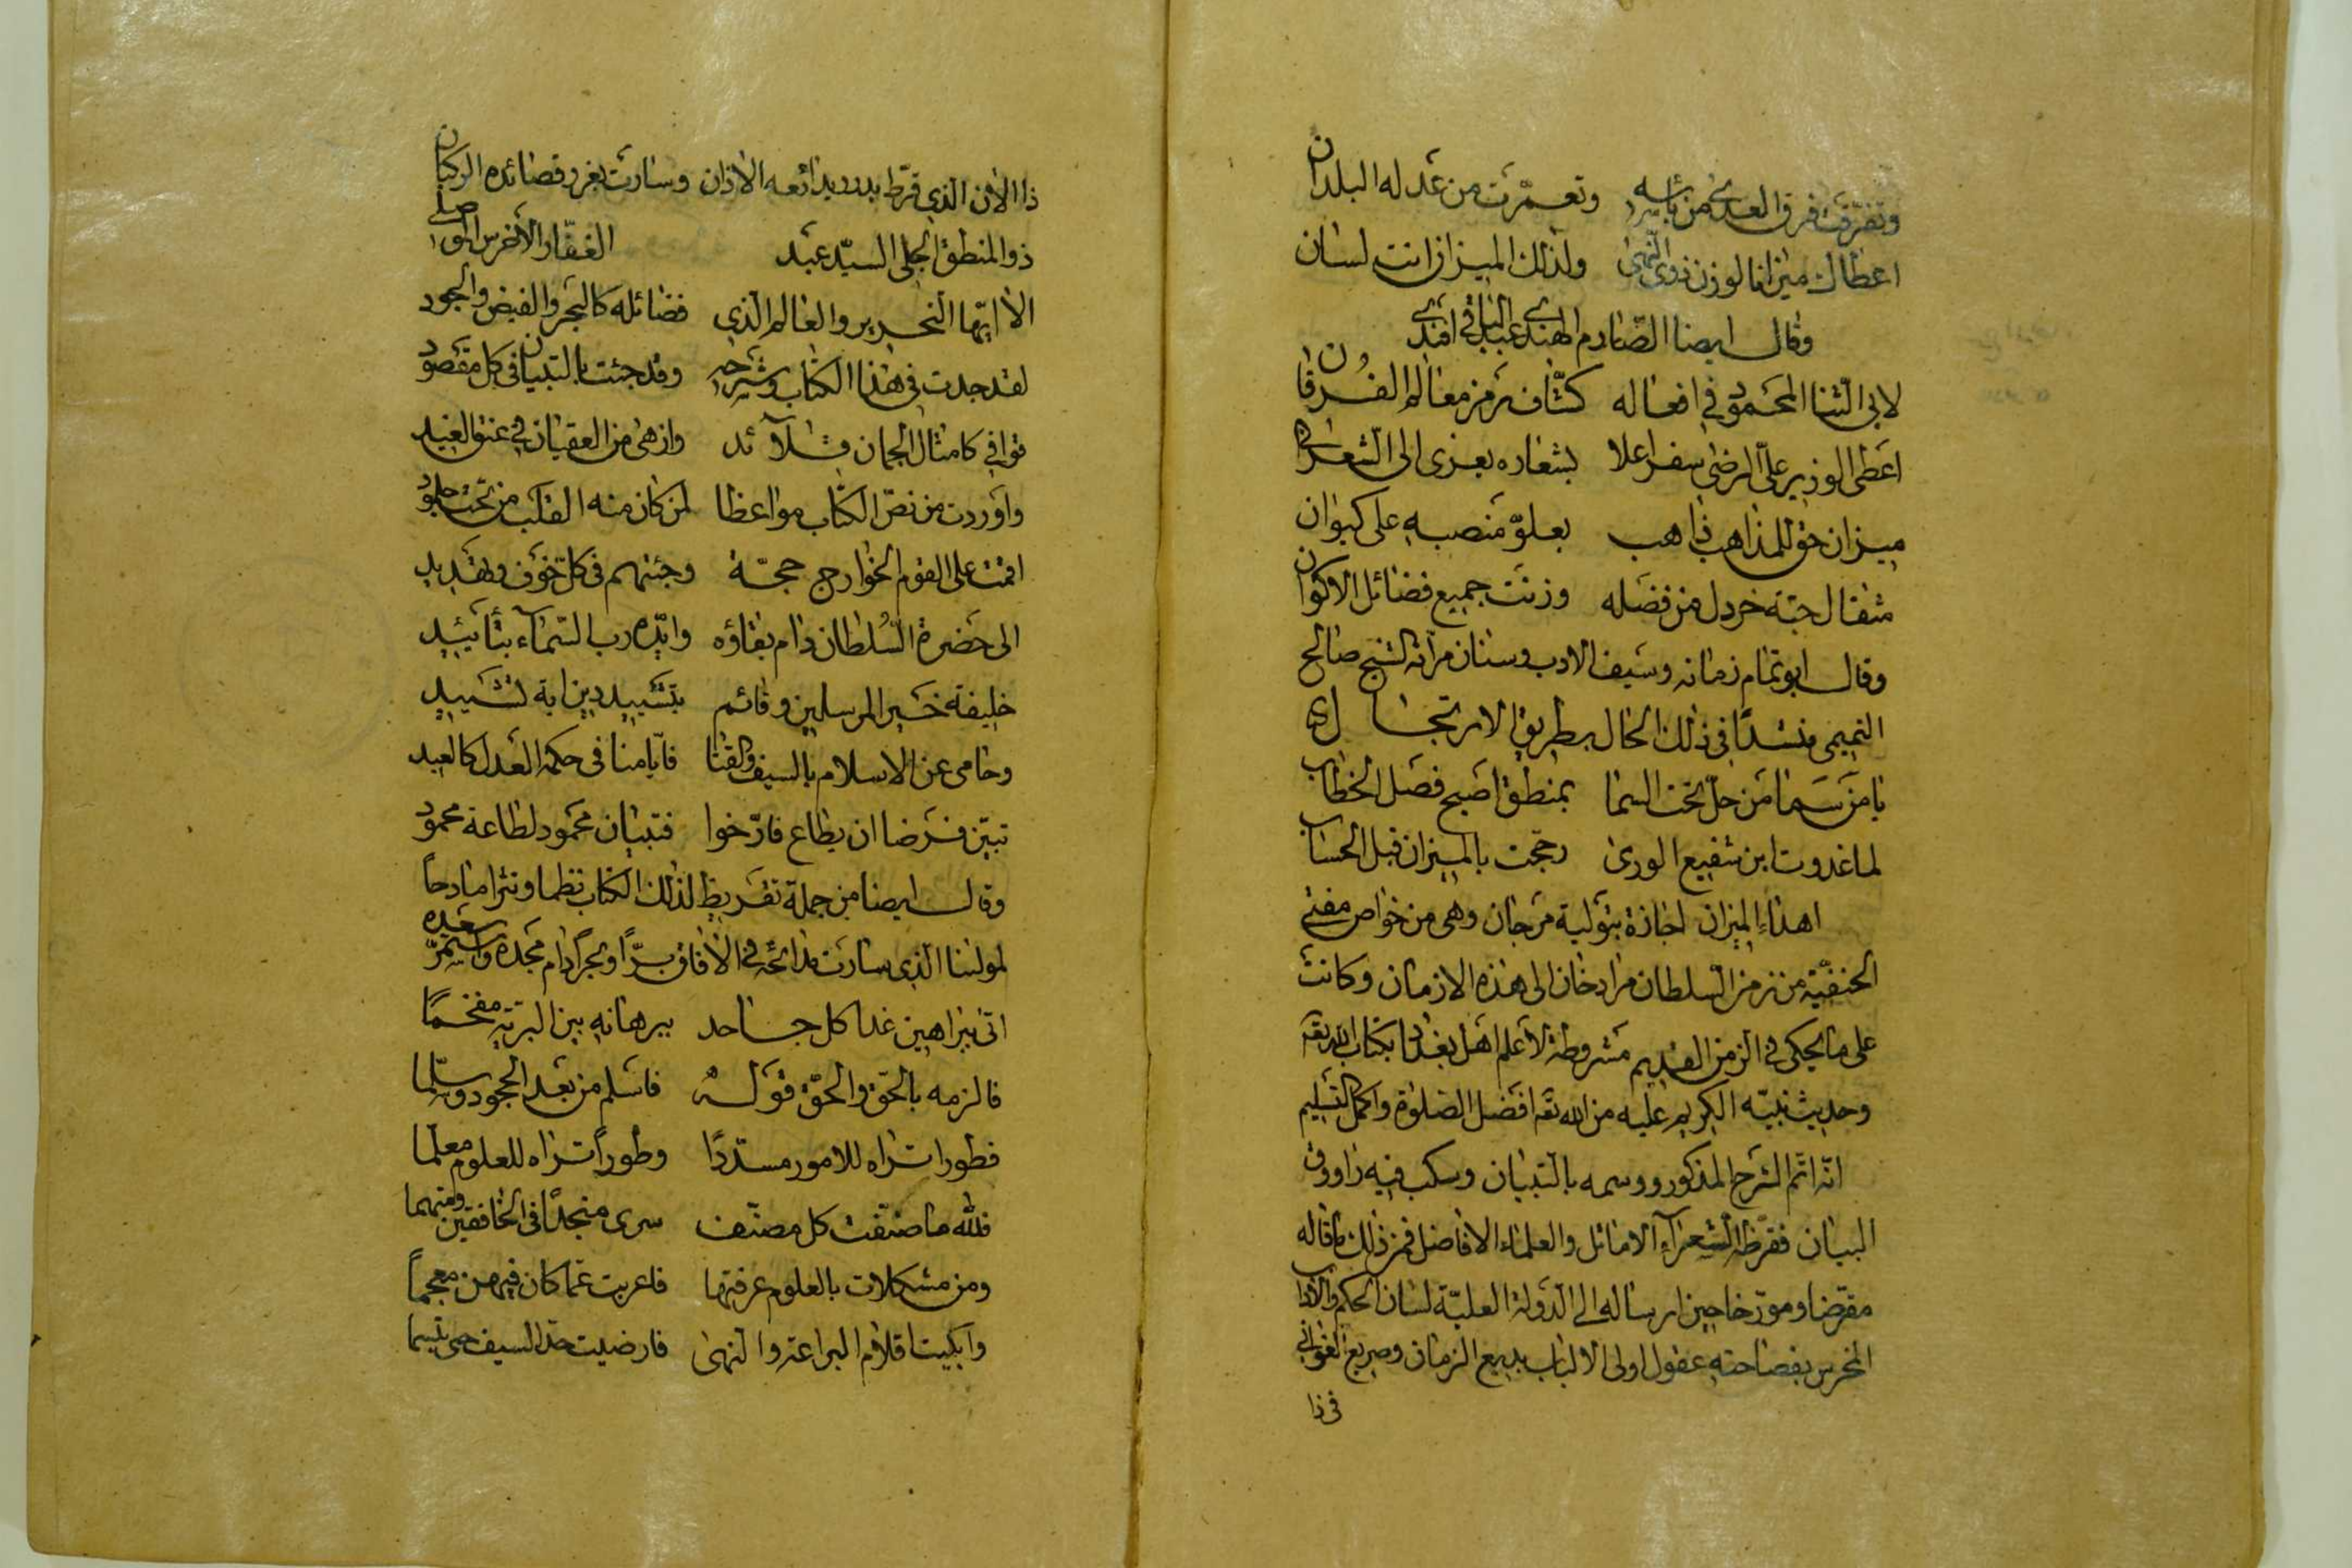 وتفرقت فرق العدى من بأسه وتعمّرت من عدله البلدان
اعطاك ميزانا لوزن ذوى النّهى ولذلك الميزان انت لسان
وقال ايضا الصّارم الهندى عبد الباقى افندى
لابى الثنا المحمود فى افعاله كشّاف رمز معالم الفرقان
اعطى الوزير علىّ الرضى سفرا علا بشعاره يعزى الى الشعرانى
ميزان حق للمذاهب ذاهب بعلوّ منصبه على كيوان
مثقال حبّة خردل من فضله وزنت جميع فضائل الاكوان
وقال ابو تمام زمانه وسيف الادب وسنان مرآته الشيخ صالح
التميمى منشدًا فى ذلك الحال بطريق الارتجال
يا من سما من حلّ تحت السما بمنطق اصبح فصل الخطاب
لما غدوت ابن شفيع الورى رجّحت بالميزان قبل الحساب
اهداء الميزان اجازة بتولية مرجان وهى من خواص مفتى
الحنفيّة من زمن السلطان مراد خان الى هذه الازمان وكانت
على ما يحكى فى الزمن القديم مشروطة لاعلم اهل بغداد بكتاب الله تعه
وحديث نبيّه الكريم عليه من الله تعه افضل الصلوة واكمل التسليم
انّه اتّم الشرح المذكور ووسمه بالتبيان وسكب فيه راووق
البيان فقرّظه الشعرآء الاماثل والعلماء الافاضل فمن ذلك ما قاله
مقرّضا ومورّخا حين ارساله الى الدّولة العليّة لسان الحكم والاداب
المخرس بفصاحته عقول اولى الالباب بديع الزمان وصريع الغوانى
فى ذا
ذا الان الذى قرّط بدرر بدائعه الاذان وسارت بغرر قصائده الركبان
ذو المنطق الجلى السيّد عبد الغفّار الأخرس الموصلى
الا ايّها النحرير والعالم الذى فضائله كالبحر والفيض والجود
لقد جدت فى هذا الكتاب وشرحه وقد جئت بالتبيان فى كل مقصود
قوافى كامثال الجمان قلآئد وازهى من العقيان فى عنق الغيد
واوردت من نصّ الكتاب مواعظا لمن كان منه القلب من تحت جلمود
اقمت على القوم الخوارج حجّة وجئتهم فى كلّ خوف وتهديد
الى حضرة السّلطان دام بقاؤه وايّده رب السّماء بتأييد
خليفة خير المرسلين وقائم بتشييد دين ايّه تشييد
وحامى عن الاسلام بالسيف والقنا فايّامنا فى حكمه العدل كالعيد
تبيّن فرضا ان يطاع فارّخوا فتبيان محمود لطاعة محمود
وقال ايضا من جملة تقريظ لذلك الكتاب نظما ونثرا مادحاً
لمولينا الذى سارت مدائحه فى الافاق برًّا وبحرًا دام مجده واستمرّ سعده
اتى ببراهين غدا كل جاحد ببرهانه بين البريّه مفخمًا
فالزمه بالحقّ والحقّ قوله فاسلم من بعد الجحود وسلّما
فطورا تراه للامور مسدّدًا وطوراً تراه للعلوم معلّما
فلله ما صنّفت كل مصنّف سرى منجدًا فى الخافقين ومتهما
ومن مشكلات بالعلوم عرفتها فاعربت عمّا كان فيهن معجماً
وابكيت اقلام البراعة والنهى فارضيت حدّ السيف حتى تبسّما